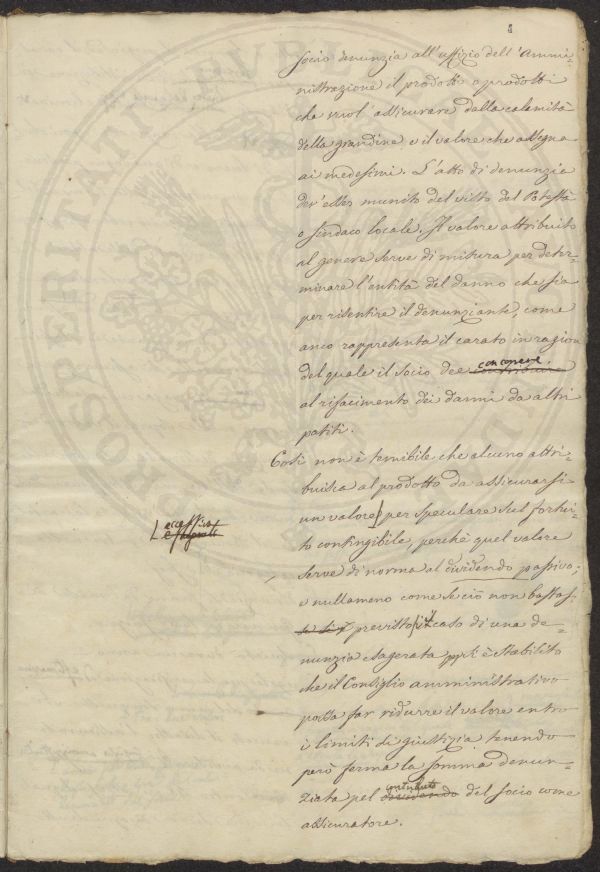 socio denunzia all'uffizio dell'Ammi-
nistrazione il prodotto o prodotti
che vuol' assicurare dalla calamità
della grandine, e il valore che assegna
ai medesimi. L'atto di denunzia
dev'esser munito del visto del Potestà
o sindaco locale. Il valore attribuito
al genere serve di misura per deter-
minare l'entità del danno che sia
per risentire il denunziante, come
anco rappresenta il carato in ragione
del quale il socio dee contribuire concorrere
al rifacimento dei danni da altri
patiti.
Così non è temibile che alcuno attri-
buisca al prodotto da assicurarsi
un valore per speculare sul fortui-
L eccessivo
to contingibile, perchè quel valore
serve di norma al dividendo passivo;
e nullameno come se ciò non bastas-
se previsto il caso di una de-
nunzia esagerata è stabilito
che il Consiglio amministrativo
possa far ridurre il valore entro
i limiti di giustizia tenendo
però ferma la somma denun-
ziata pel dividendo contributo del socio come
assicuratore.